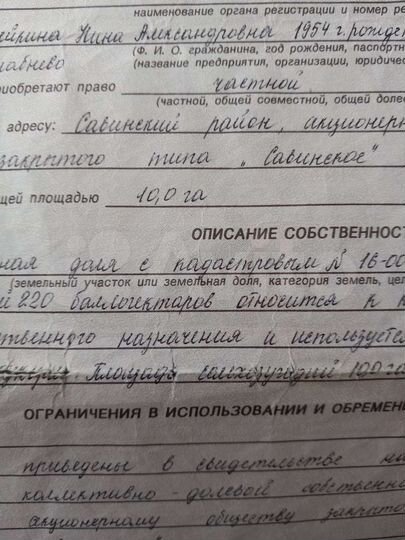 наименование органа регистрации и номер ре
Нина Александровна 1954 г. рожден
(Ф. И. О. гражданина, год рождения, паспортн
(название предприятия, организации, юридичес
риобретают право частной
(частной, общей совместной, общей долев
адресу: Савинский район, акционерн
закрытого типа „Савинское"
щей площадью 10,0 га
ОПИСАНИЕ СОБСТВЕННОСТ
ная доля с кадастровым № 16-00
(земельный участок или земельная доля, категория земель, цел
й 220 баллогектаров относится к к
ственного назначения и используетс
Площадь сельхозугодий 10,0 га
ОГРАНИЧЕНИЯ В ИСПОЛЬЗОВАНИИ И ОБРЕМЕН
приведены в свидетельстве на
коллективно-долевой собственно
акционерному обществу закрыт